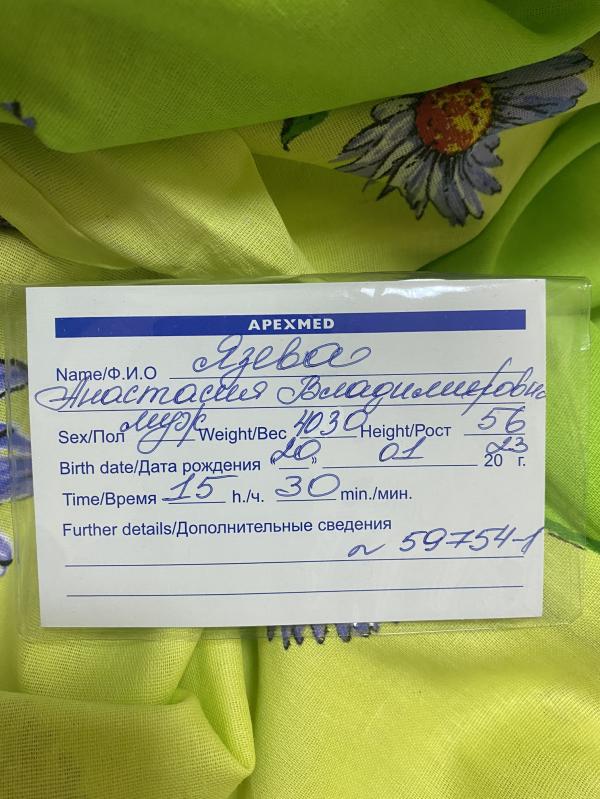 APEXMED
Name/Ф.И.О Язева
Анастасия Владимировна
Sex/Пол муж Weight/Вес 4030 Height/Рост 56
Birth date/Дата рождения «20» 01 2023 г.
Time/Время 15 h./ч. 30 min./мин.
Further details/Дополнительные сведения
~ 59754-1